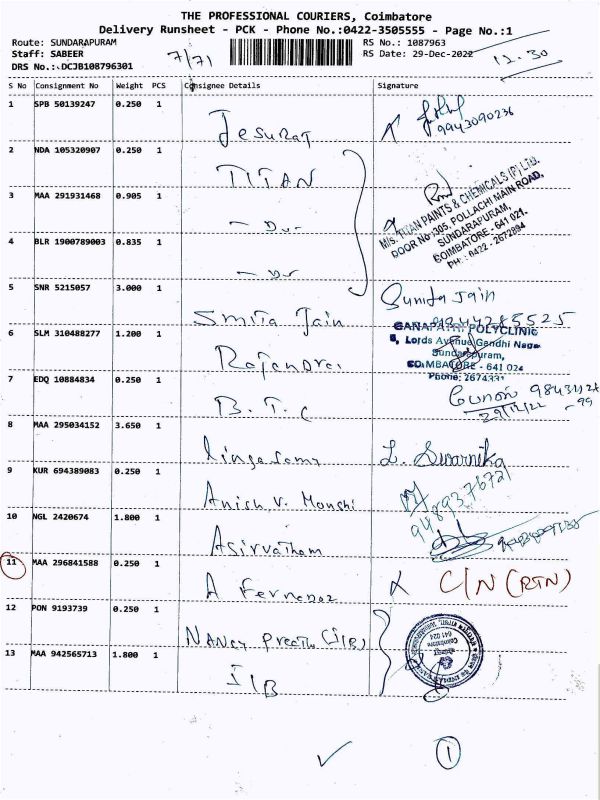 THE PROFESSIONAL COURIERS, Coimbatore
Delivery Runsheet - PCK - Phone No.:0422-3505555 - Page No.:1
Route: SUNDARAPURAM
Staff: SABEER
DRS No.:-DCJB108796301
7/71
RS No.: 1087963
RS Date: 29-Dec-2022
12.30
S No Consignment No Weight PCS Consignee Details Signature
1 SPB 50139247 0.250 1
Jesuraj
9943090236
2 NDA 105320907 0.250 1
TITAN
3 MAA 291931468 0.905 1
M/s. TITAN PAINTS & CHEMICALS (P) LTD.
DOOR No-305, POLLACHI MAIN ROAD,
SUNDARAPURAM,
COIMBATORE - 641 021.
PH.: 0422 - 2672894
4 BLR 1900789003 0.835 1
5 SNR 5215057 3.000 1
Smita Jain
Sunita Jain
6 SLM 310488277 1.200 1
Rajendran
GANAPATHI POLYCLINIC
5, Lords Avenue Gandhi Nagar
Sundarapuram,
COIMBATORE - 641 024
Phone: 267433
7 EDQ 10884834 0.250 1
B.T.C
29/12/22
8 MAA 295034152 3.650 1
9 KUR 694389083 0.250 1
Anish. V. Monshi
10 NGL 2420674 1.800 1
Asirvatham
11 MAA 296841588 0.250 1
A Fernandez
C/N (RTN)
12 PON 9193739 0.250 1
NANCY Preethi (I/B)
13 MAA 942565713 1.800 1
I/B
1